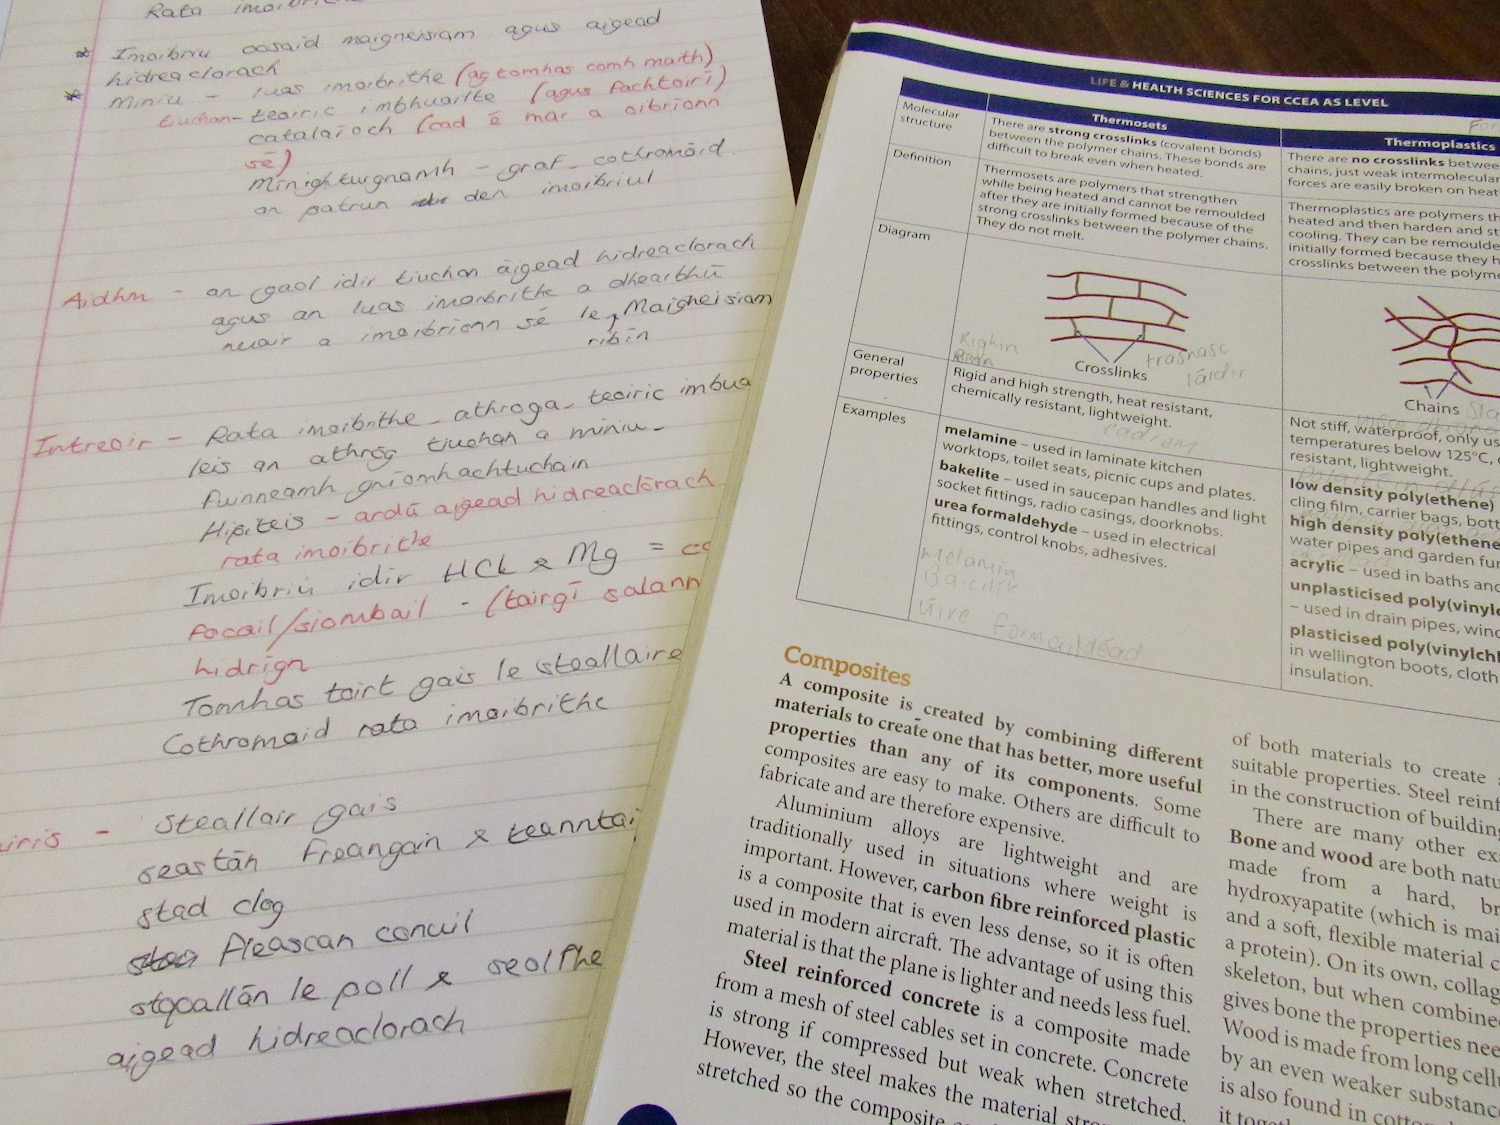 Rata
* Imoibriu ocsaid maigneisiam agus aigead
hidreaclorach
* Miniu - luas imoibrithe (ag tomhas comh maith)
tiuchan - teoiric imbhuailte (agus fachtoirí)
catalaíoch (cad é mar a oibríonn
sé)
turgnamh - graf - cothromóid
an patrun den imoibriul
Aidhm - an gaol idir tiuchan aigead hidreaclorach
agus an luas imoibrithe a dhearthú
nuair a imoibríonn sé le Maigneisiam
ribín
Intreoir - Rata imoibrithe - athroga - teoiric imbua
leis an athróg tiuchan a miniu -
fuinneamh gníomhachtuchain
Hipiteis - ardú aigead hidreaclórach
rata imoibrithe
Imoibriú idir HCl & Mg = co
focail/siombail - (táirgí salann
hidrigin
Tomhas toirt gais le steallaire
Cothromaid rata imoibrithe
iris - Steallair gais
seastán Freangain & teanntai
stad clog
fleascan conuil
stopallán le poll & seolfhe
aigead hidreaclorach
LIFE & HEALTH SCIENCES FOR CCEA AS LEVEL
Thermosets
Thermoplastics
Molecular
structure
There are strong crosslinks (covalent bonds)
between the polymer chains. These bonds are
difficult to break even when heated.
There are no crosslinks betwee
chains, just weak intermolecular
forces are easily broken on heat
Definition
Thermosets are polymers that strengthen
while being heated and cannot be remoulded
after they are initially formed because of the
strong crosslinks between the polymer chains.
They do not melt.
Thermoplastics are polymers th
heated and then harden and st
cooling. They can be remoulde
initially formed because they h
crosslinks between the polyme
Diagram
Righin
Crosslinks
trasnasc
láidir
Chains
General
properties
Rigid and high strength, heat resistant,
chemically resistant, lightweight.
eadrom
Not stiff, waterproof, only us
temperatures below 125°C,
resistant, lightweight.
Examples
melamine – used in laminate kitchen
worktops, toilet seats, picnic cups and plates.
bakelite – used in saucepan handles and light
socket fittings, radio casings, doorknobs.
urea formaldehyde – used in electrical
fittings, control knobs, adhesives.
Melamin
Baicilít
Úire formaildéad
low density poly(ethene)
cling film, carrier bags, bott
high density poly(ethene
water pipes and garden fur
acrylic – used in baths and
unplasticised poly(vinylc
– used in drain pipes, wind
plasticised poly(vinylchl
in wellington boots, cloth
insulation.
Composites
A composite is created by combining different
materials to create one that has better, more useful
properties than any of its components. Some
composites are easy to make. Others are difficult to
fabricate and are therefore expensive.
Aluminium alloys are lightweight and are
traditionally used in situations where weight is
important. However, carbon fibre reinforced plastic
is a composite that is even less dense, so it is often
used in modern aircraft. The advantage of using this
material is that the plane is lighter and needs less fuel.
Steel reinforced concrete is a composite made
from a mesh of steel cables set in concrete. Concrete
is strong if compressed but weak when stretched.
However, the steel makes the material stro
stretched so the composite
of both materials to create
suitable properties. Steel reinf
in the construction of building
There are many other ex
Bone and wood are both natu
made from a hard, br
hydroxyapatite (which is mai
and a soft, flexible material c
a protein). On its own, collag
skeleton, but when combined
gives bone the properties nee
Wood is made from long cellu
by an even weaker substance
is also found in cotton
it togeth